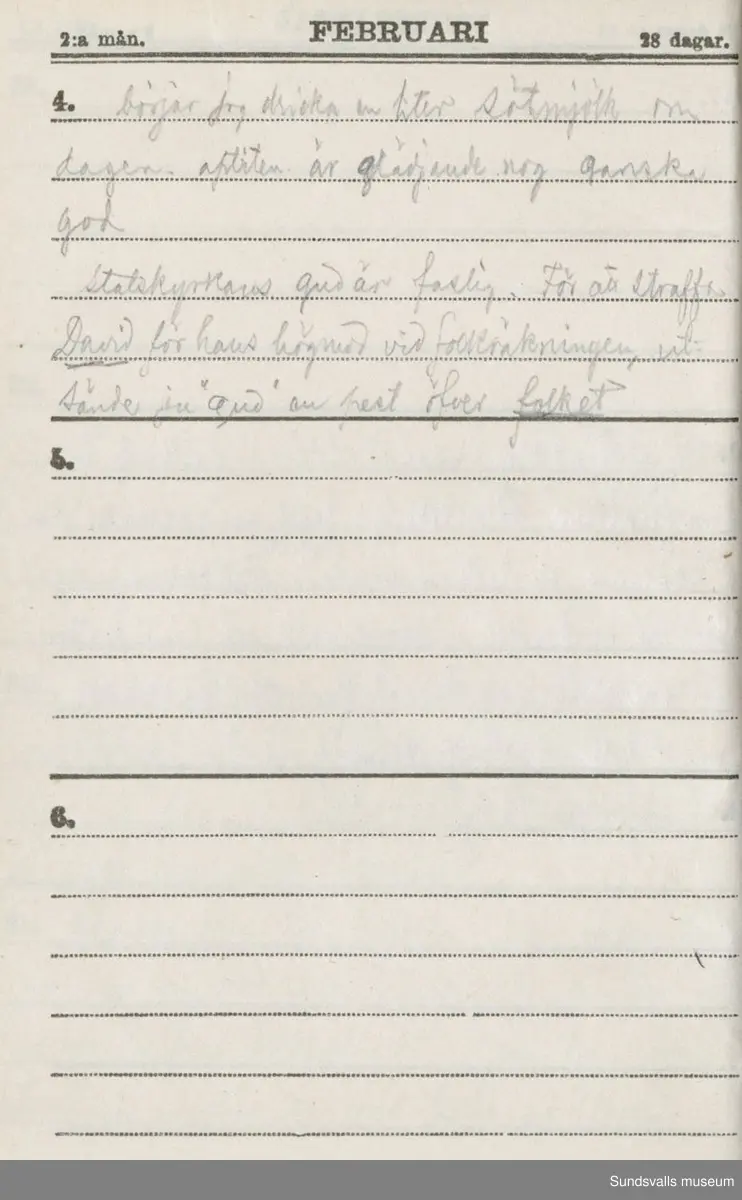 2:a mån. FEBRUARI 28 dagar.
4. börjar jag dricka en liter sötmjölk om
dagen. aptiten är glädjande nog ganska
god
Statskyrkans gud är faslig. För att straffa
David för hans högmod vid folkräkningen, ut-
sände ju "gud" en pest öfver folket
5.
6.
Sundsvalls museum